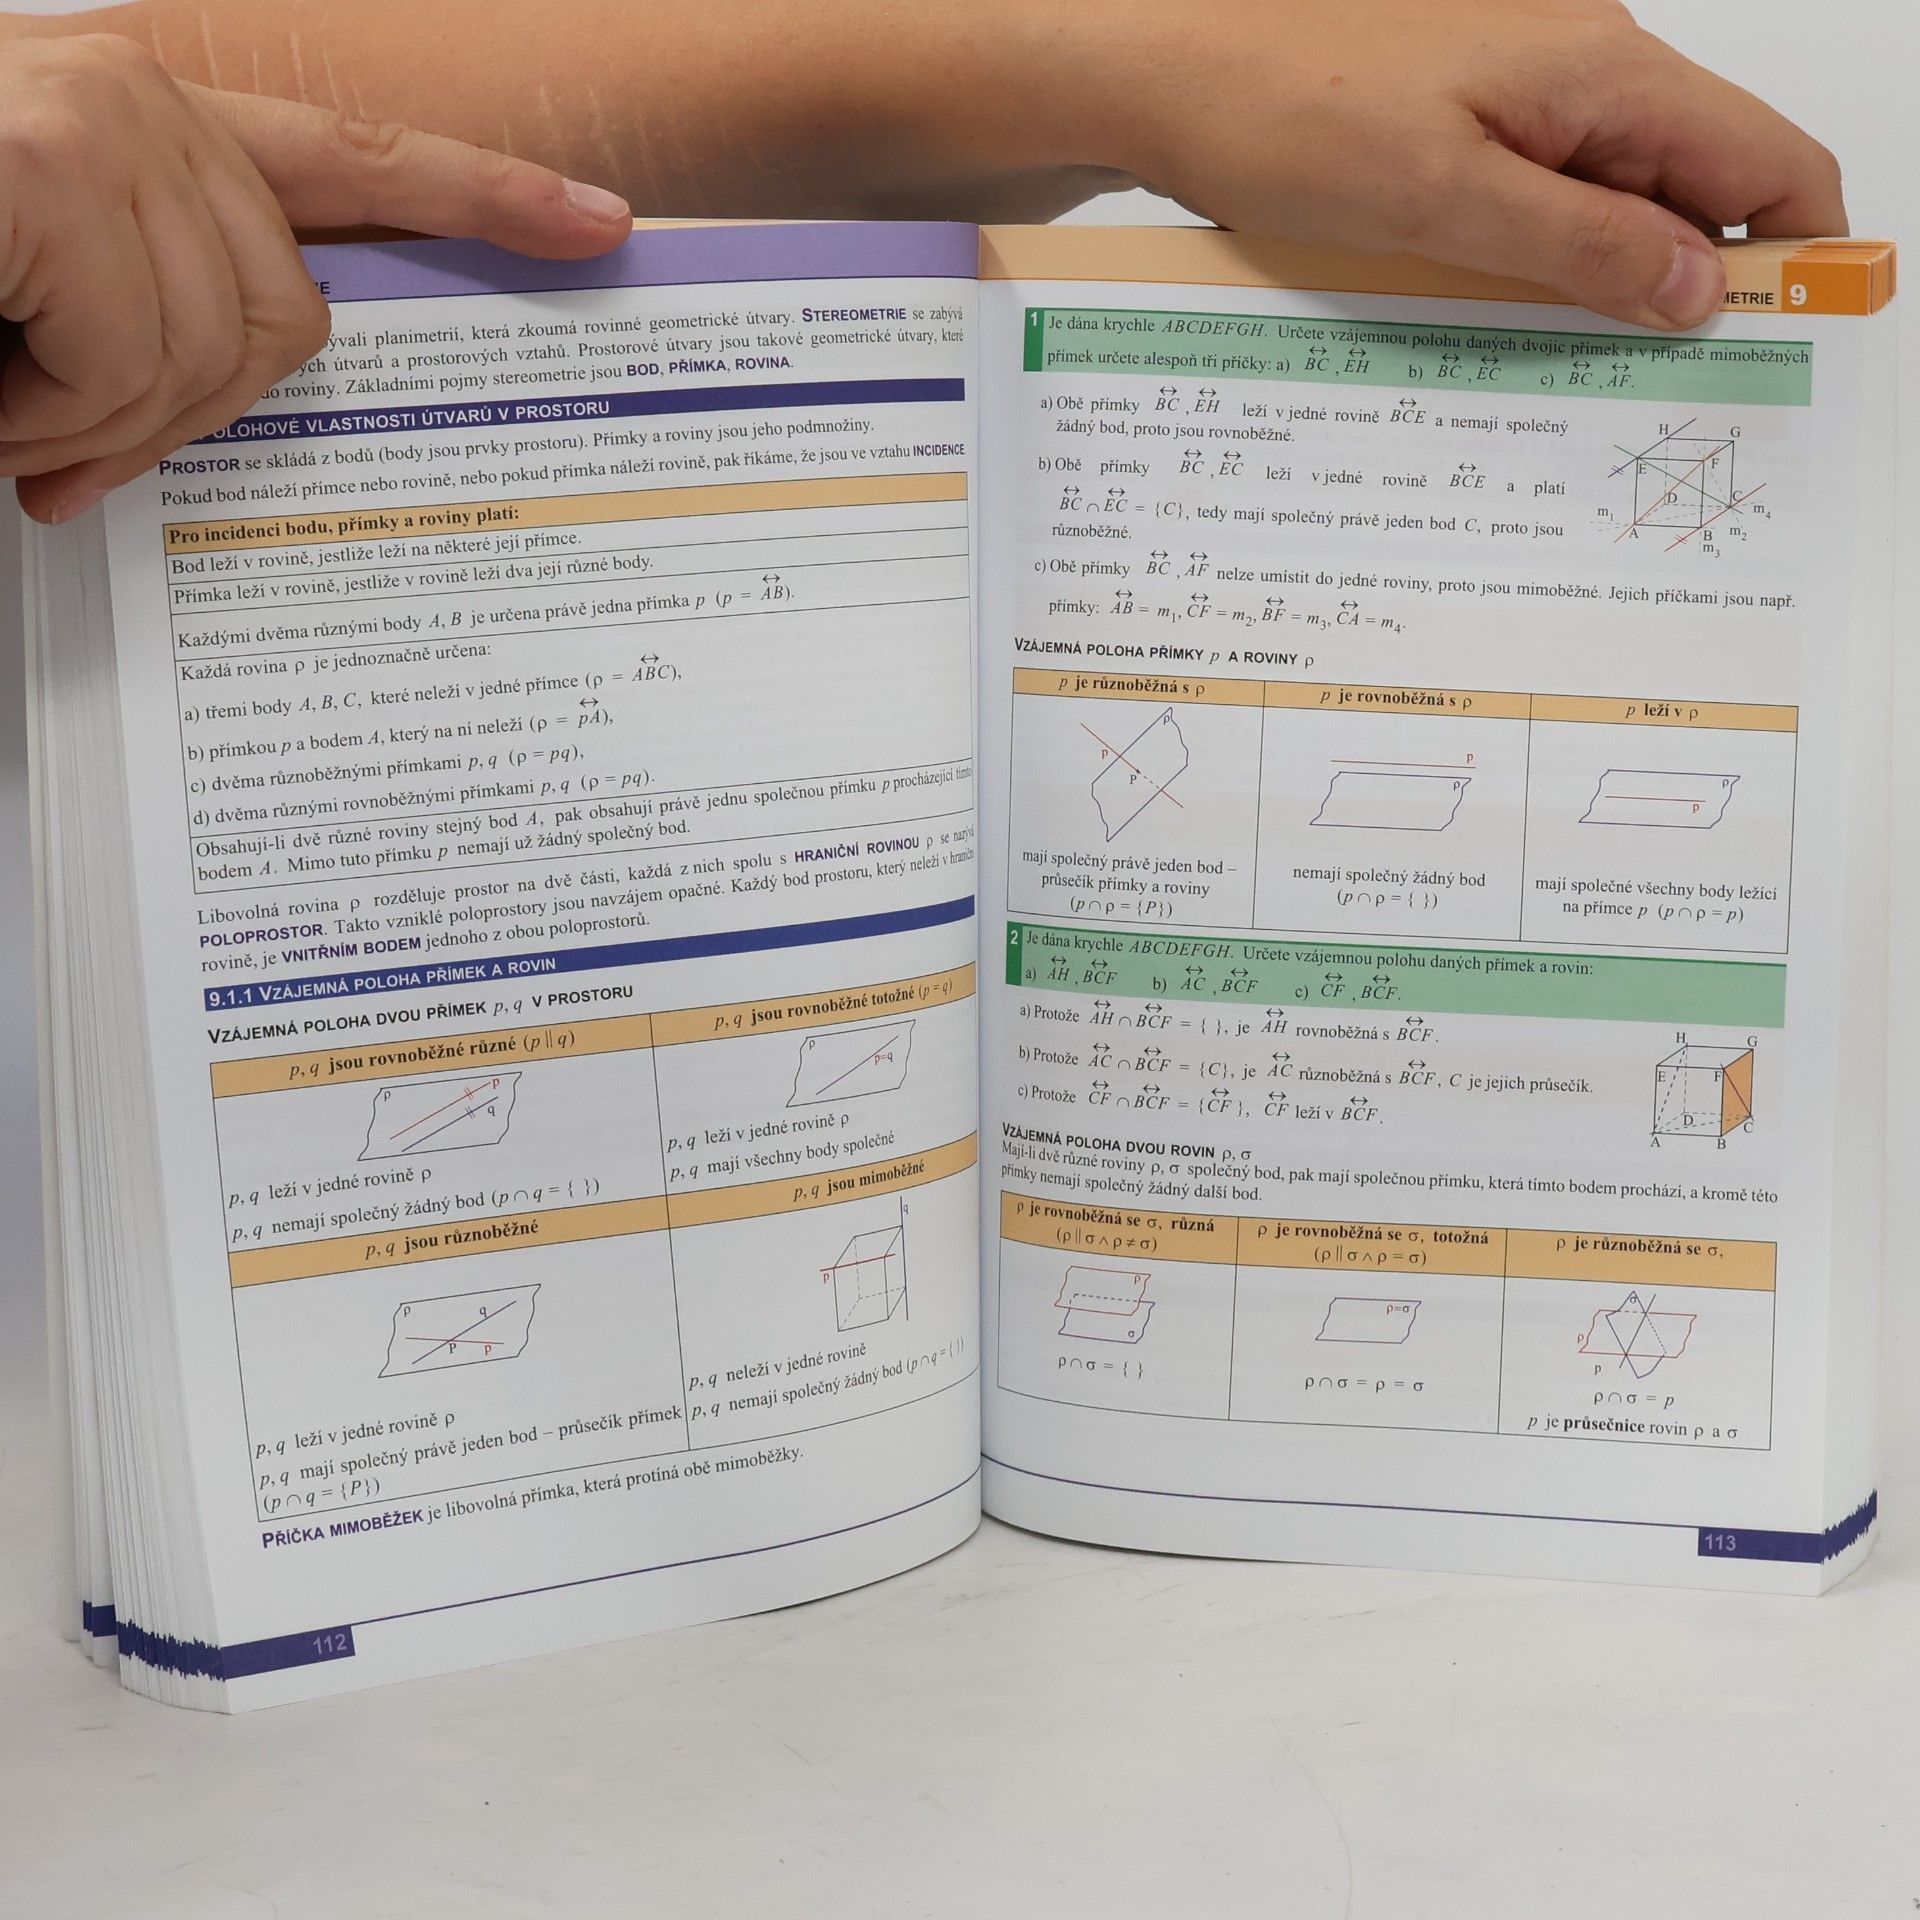 E
ývali planimetrií, která zkoumá rovinné geometrické útvary. STEREOMETRIE se zabývá
ých útvarů a prostorových vztahů. Prostorové útvary jsou takové geometrické útvary, které
do roviny. Základními pojmy stereometrie jsou BOD, PŘÍMKA, ROVINA.
POLOHOVÉ VLASTNOSTI ÚTVARŮ V PROSTORU
PROSTOR se skládá z bodů (body jsou prvky prostoru). Přímky a roviny jsou jeho podmnožiny.
Pokud bod náleží přímce nebo rovině, nebo pokud přímka náleží rovině, pak říkáme, že jsou ve vztahu INCIDENCE
Pro incidenci bodu, přímky a roviny platí:
Bod leží v rovině, jestliže leží na některé její přímce.
Přímka leží v rovině, jestliže v rovině leží dva její různé body.
Každými dvěma různými body A, B je určena právě jedna přímka p (p = ↔AB).
Každá rovina ρ je jednoznačně určena:
a) třemi body A, B, C, které neleží v jedné přímce (ρ = ↔ABC),
b) přímkou p a bodem A, který na ní neleží (ρ = ↔pA),
c) dvěma různoběžnými přímkami p, q (ρ = pq),
d) dvěma různými rovnoběžnými přímkami p, q (ρ = pq).
Obsahují-li dvě různé roviny stejný bod A, pak obsahují právě jednu společnou přímku p procházející tímto
bodem A. Mimo tuto přímku p nemají už žádný společný bod.
Libovolná rovina ρ rozděluje prostor na dvě části, každá z nich spolu s HRANIČNÍ ROVINOU ρ se nazývá
POLOPROSTOR. Takto vzniklé poloprostory jsou navzájem opačné. Každý bod prostoru, který neleží v hraniční
rovině, je VNITŘNÍM BODEM jednoho z obou poloprostorů.
9.1.1 VZÁJEMNÁ POLOHA PŘÍMEK A ROVIN
VZÁJEMNÁ POLOHA DVOU PŘÍMEK p, q V PROSTORU
p, q jsou rovnoběžné různé (p || q)
p, q jsou rovnoběžné totožné (p = q)
ρ
p
q
ρ
p=q
p, q leží v jedné rovině ρ
p, q nemají společný žádný bod (p ∩ q = { })
p, q leží v jedné rovině ρ
p, q mají všechny body společné
p, q jsou různoběžné
p, q jsou mimoběžné
ρ
q
P
p
q
p
p, q leží v jedné rovině ρ
p, q mají společný právě jeden bod – průsečík přímek
(p ∩ q = {P})
p, q neleží v jedné rovině
p, q nemají společný žádný bod (p ∩ q = { })
PŘÍČKA MIMOBĚŽEK je libovolná přímka, která protíná obě mimoběžky.
112
METRIE 9
1 Je dána krychle ABCDEFGH. Určete vzájemnou polohu daných dvojic přímek a v případě mimoběžných
přímek určete alespoň tři příčky: a) ↔BC, ↔EH b) ↔BC, ↔EC c) ↔BC, ↔AF.
a) Obě přímky ↔BC, ↔EH leží v jedné rovině ↔BCE a nemají společný
žádný bod, proto jsou rovnoběžné.
b) Obě přímky ↔BC, ↔EC leží v jedné rovině ↔BCE a platí
↔BC ∩ ↔EC = {C}, tedy mají společný právě jeden bod C, proto jsou
různoběžné.
H
G
E
F
D
C
m₁
m₄
A
B
m₂
m₃
c) Obě přímky ↔BC, ↔AF nelze umístit do jedné roviny, proto jsou mimoběžné. Jejich příčkami jsou např.
přímky: ↔AB = m₁, ↔CF = m₂, ↔BF = m₃, ↔CA = m₄.
VZÁJEMNÁ POLOHA PŘÍMKY p A ROVINY ρ
p je různoběžná s ρ
p je rovnoběžná s ρ
p leží v ρ
ρ
p
P
p
ρ
ρ
p
mají společný právě jeden bod –
průsečík přímky a roviny
(p ∩ ρ = {P})
nemají společný žádný bod
(p ∩ ρ = { })
mají společné všechny body ležící
na přímce p (p ∩ ρ = p)
2 Je dána krychle ABCDEFGH. Určete vzájemnou polohu daných přímek a rovin:
a) ↔AH, ↔BCF b) ↔AC, ↔BCF c) ↔CF, ↔BCF.
a) Protože ↔AH ∩ ↔BCF = { }, je ↔AH rovnoběžná s ↔BCF.
b) Protože ↔AC ∩ ↔BCF = {C}, je ↔AC různoběžná s ↔BCF, C je jejich průsečík.
c) Protože ↔CF ∩ ↔BCF = {↔CF}, ↔CF leží v ↔BCF.
H
G
E
F
D
C
A
B
VZÁJEMNÁ POLOHA DVOU ROVIN ρ, σ
Mají-li dvě různé roviny ρ, σ společný bod, pak mají společnou přímku, která tímto bodem prochází, a kromě této
přímky nemají společný žádný další bod.
ρ je rovnoběžná se σ, různá
(ρ || σ ∧ ρ ≠ σ)
ρ je rovnoběžná se σ, totožná
(ρ || σ ∧ ρ = σ)
ρ je různoběžná se σ,
ρ
σ
ρ=σ
σ
ρ
p
ρ ∩ σ = { }
ρ ∩ σ = ρ = σ
ρ ∩ σ = p
p je průsečnice rovin ρ a σ
113